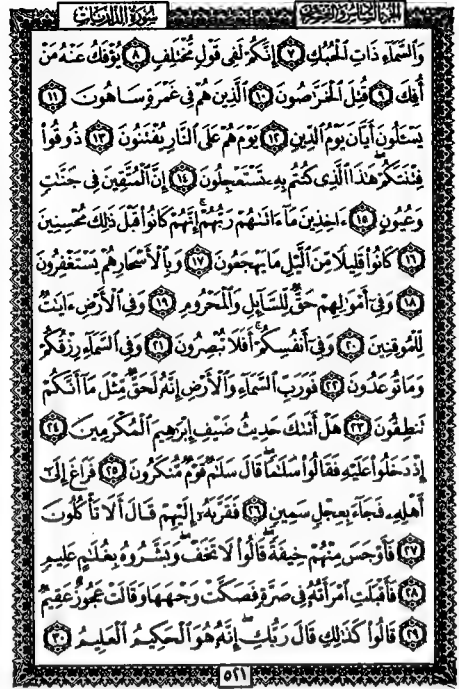 الجزء السادس والعشرون سورة الذاريات
وَالسَّمَآءِ ذَاتِ الْحُبُكِ ﴿٧﴾ إِنَّكُمْ لَفِى قَوْلٍ مُّخْتَلِفٍ ﴿٨﴾ يُؤْفَكُ عَنْهُ مَنْ
أُفِكَ ﴿٩﴾ قُتِلَ الْخَرَّٰصُونَ ﴿١٠﴾ الَّذِينَ هُمْ فِى غَمْرَةٍ سَاهُونَ ﴿١١﴾
يَسْـَٔلُونَ أَيَّانَ يَوْمُ الدِّينِ ﴿١٢﴾ يَوْمَ هُمْ عَلَى النَّارِ يُفْتَنُونَ ﴿١٣﴾ ذُوقُوا۟
فِتْنَتَكُمْ هَٰذَا الَّذِى كُنتُم بِهِۦ تَسْتَعْجِلُونَ ﴿١٤﴾ إِنَّ الْمُتَّقِينَ فِى جَنَّٰتٍ
وَعُيُونٍ ﴿١٥﴾ ءَاخِذِينَ مَآ ءَاتَىٰهُمْ رَبُّهُمْ ۚ إِنَّهُمْ كَانُوا۟ قَبْلَ ذَٰلِكَ مُحْسِنِينَ
﴿١٦﴾ كَانُوا۟ قَلِيلًا مِّنَ الَّيْلِ مَا يَهْجَعُونَ ﴿١٧﴾ وَبِالْأَسْحَارِ هُمْ يَسْتَغْفِرُونَ
﴿١٨﴾ وَفِىٓ أَمْوَٰلِهِمْ حَقٌّ لِّلسَّآئِلِ وَالْمَحْرُومِ ﴿١٩﴾ وَفِى الْأَرْضِ ءَايَٰتٌ
لِّلْمُوقِنِينَ ﴿٢٠﴾ وَفِىٓ أَنفُسِكُمْ ۚ أَفَلَا تُبْصِرُونَ ﴿٢١﴾ وَفِى السَّمَآءِ رِزْقُكُمْ
وَمَا تُوعَدُونَ ﴿٢٢﴾ فَوَرَبِّ السَّمَآءِ وَالْأَرْضِ إِنَّهُۥ لَحَقٌّ مِّثْلَ مَآ أَنَّكُمْ
تَنطِقُونَ ﴿٢٣﴾ هَلْ أَتَىٰكَ حَدِيثُ ضَيْفِ إِبْرَٰهِيمَ الْمُكْرَمِينَ ﴿٢٤﴾
إِذْ دَخَلُوا۟ عَلَيْهِ فَقَالُوا۟ سَلَٰمًا ۖ قَالَ سَلَٰمٌ قَوْمٌ مُّنكَرُونَ ﴿٢٥﴾ فَرَاغَ إِلَىٰٓ
أَهْلِهِۦ فَجَآءَ بِعِجْلٍ سَمِينٍ ﴿٢٦﴾ فَقَرَّبَهُۥٓ إِلَيْهِمْ قَالَ أَلَا تَأْكُلُونَ
﴿٢٧﴾ فَأَوْجَسَ مِنْهُمْ خِيفَةً ۖ قَالُوا۟ لَا تَخَفْ ۖ وَبَشَّرُوهُ بِغُلَٰمٍ عَلِيمٍ
﴿٢٨﴾ فَأَقْبَلَتِ امْرَأَتُهُۥ فِى صَرَّةٍ فَصَكَّتْ وَجْهَهَا وَقَالَتْ عَجُوزٌ عَقِيمٌ
﴿٢٩﴾ قَالُوا۟ كَذَٰلِكِ قَالَ رَبُّكِ ۖ إِنَّهُۥ هُوَ الْحَكِيمُ الْعَلِيمُ ﴿٣٠﴾
٥٢١